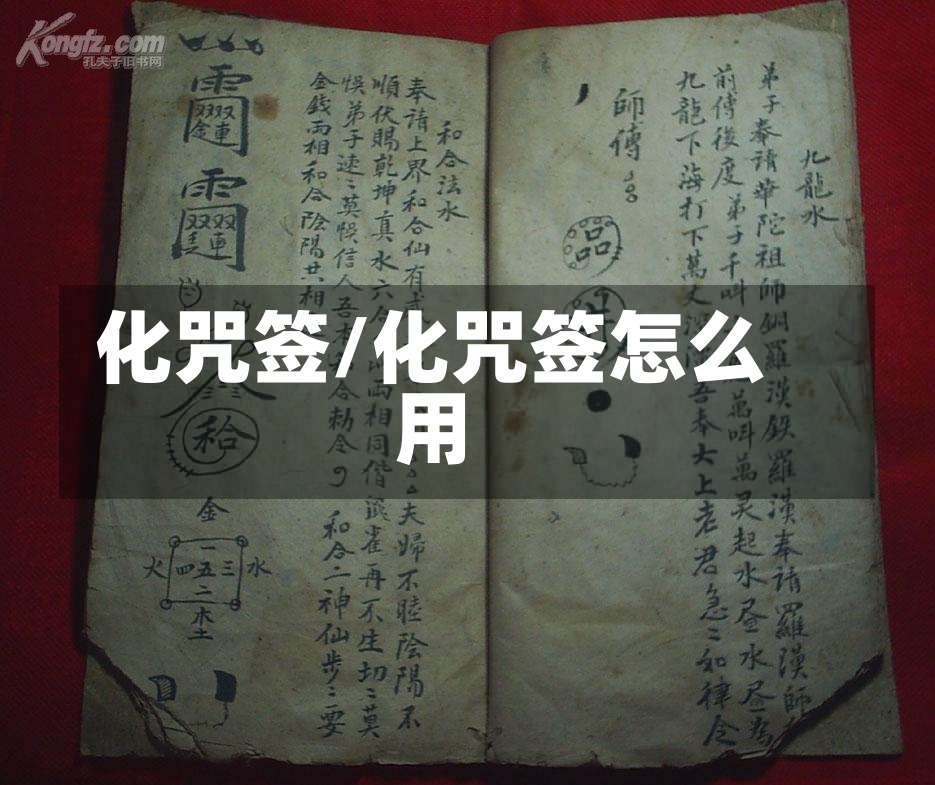 Kongfz.com
孔夫子旧书网
化咒签/化咒签怎么
用
九龍水
弟子奉請華陀祖師銅羅漢鉄羅漢奉請羅漢師
前傳後度弟子千叫
萬叫萬灵起水昼水昼為
九龍下海打下萬丈
吾奉太上老君急〻如律令
師傅
和合法水
奉請上界和合仙有
夫婦不睦陰陽不
順伏賜乾坤真水六合
両相同偕
雀再不生切〻莫
悮弟子速〻莫悮信人吾本
合勅令
和合二神仙步〻要
金錢両相和合陰陽共相
金車
車
給
金
火
一
四五三
二
水
木
土